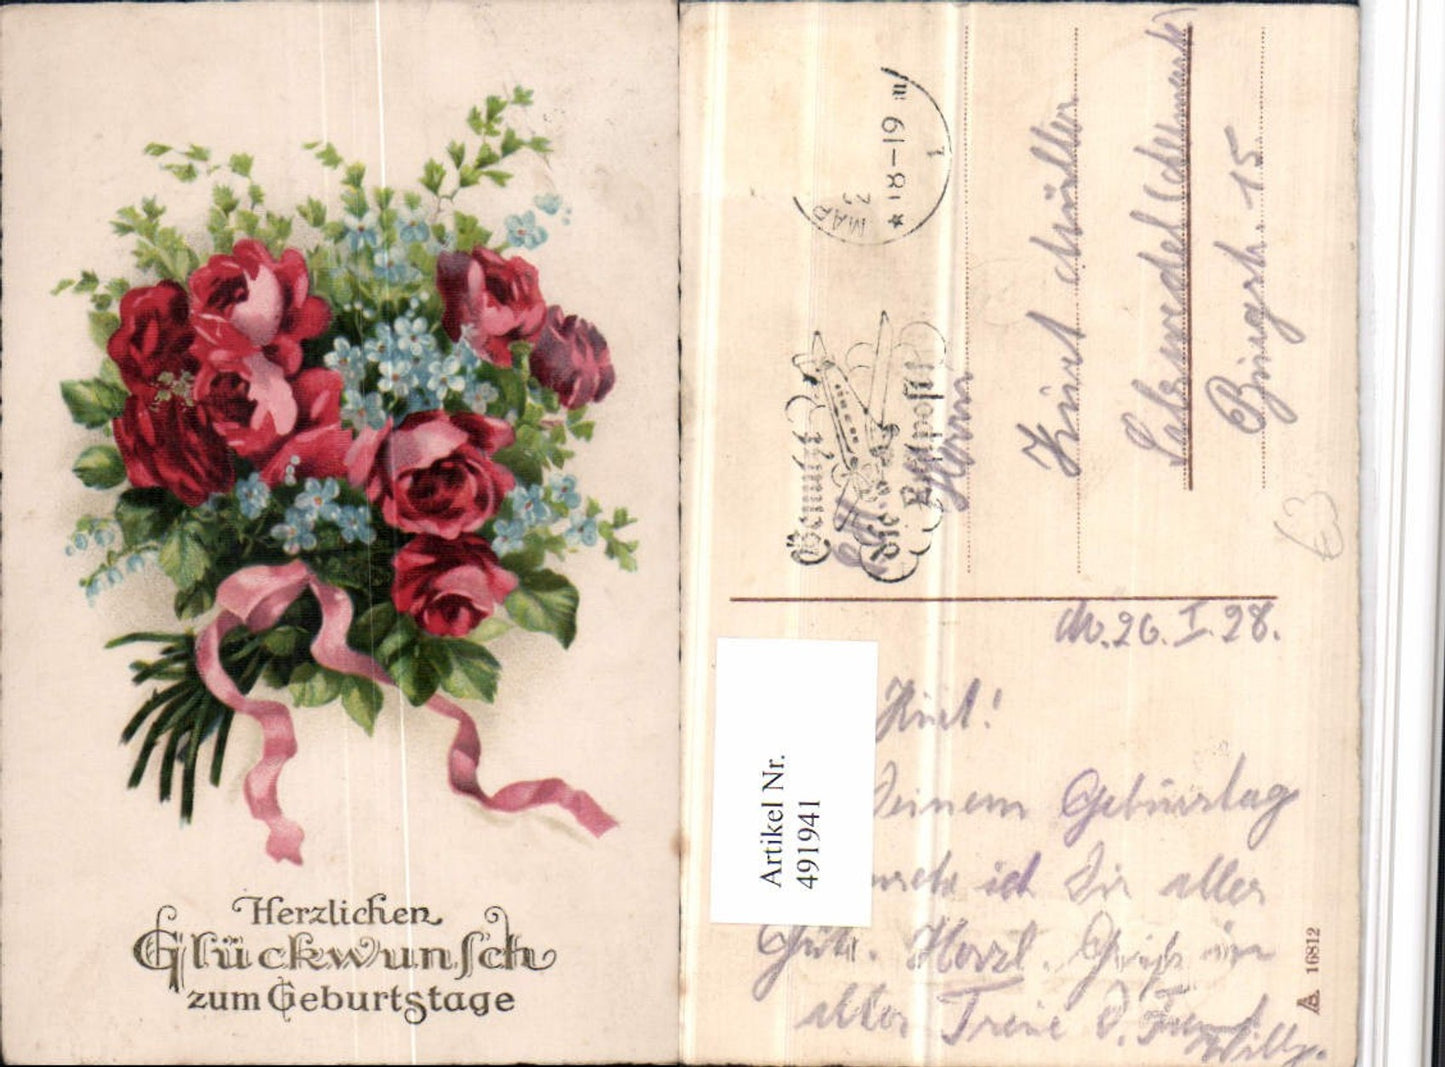 Herzlichen
Glückwunsch
zum Geburtstage
MAR
18-19
1
Benutzt
die Luftpost
Herrn
Kurt Müller
Salzwedel (Altmark)
15
26. I. 28.
Kurt!
Deinem Geburtstag
ich Dir alles
Gute. Herzl. Grüße in
alter Treue D. Freund
Willy.
Artikel Nr.
491941
16812